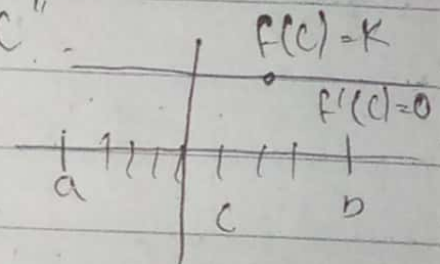 c"
f(c)=K
f'(c)=0
a
c
b